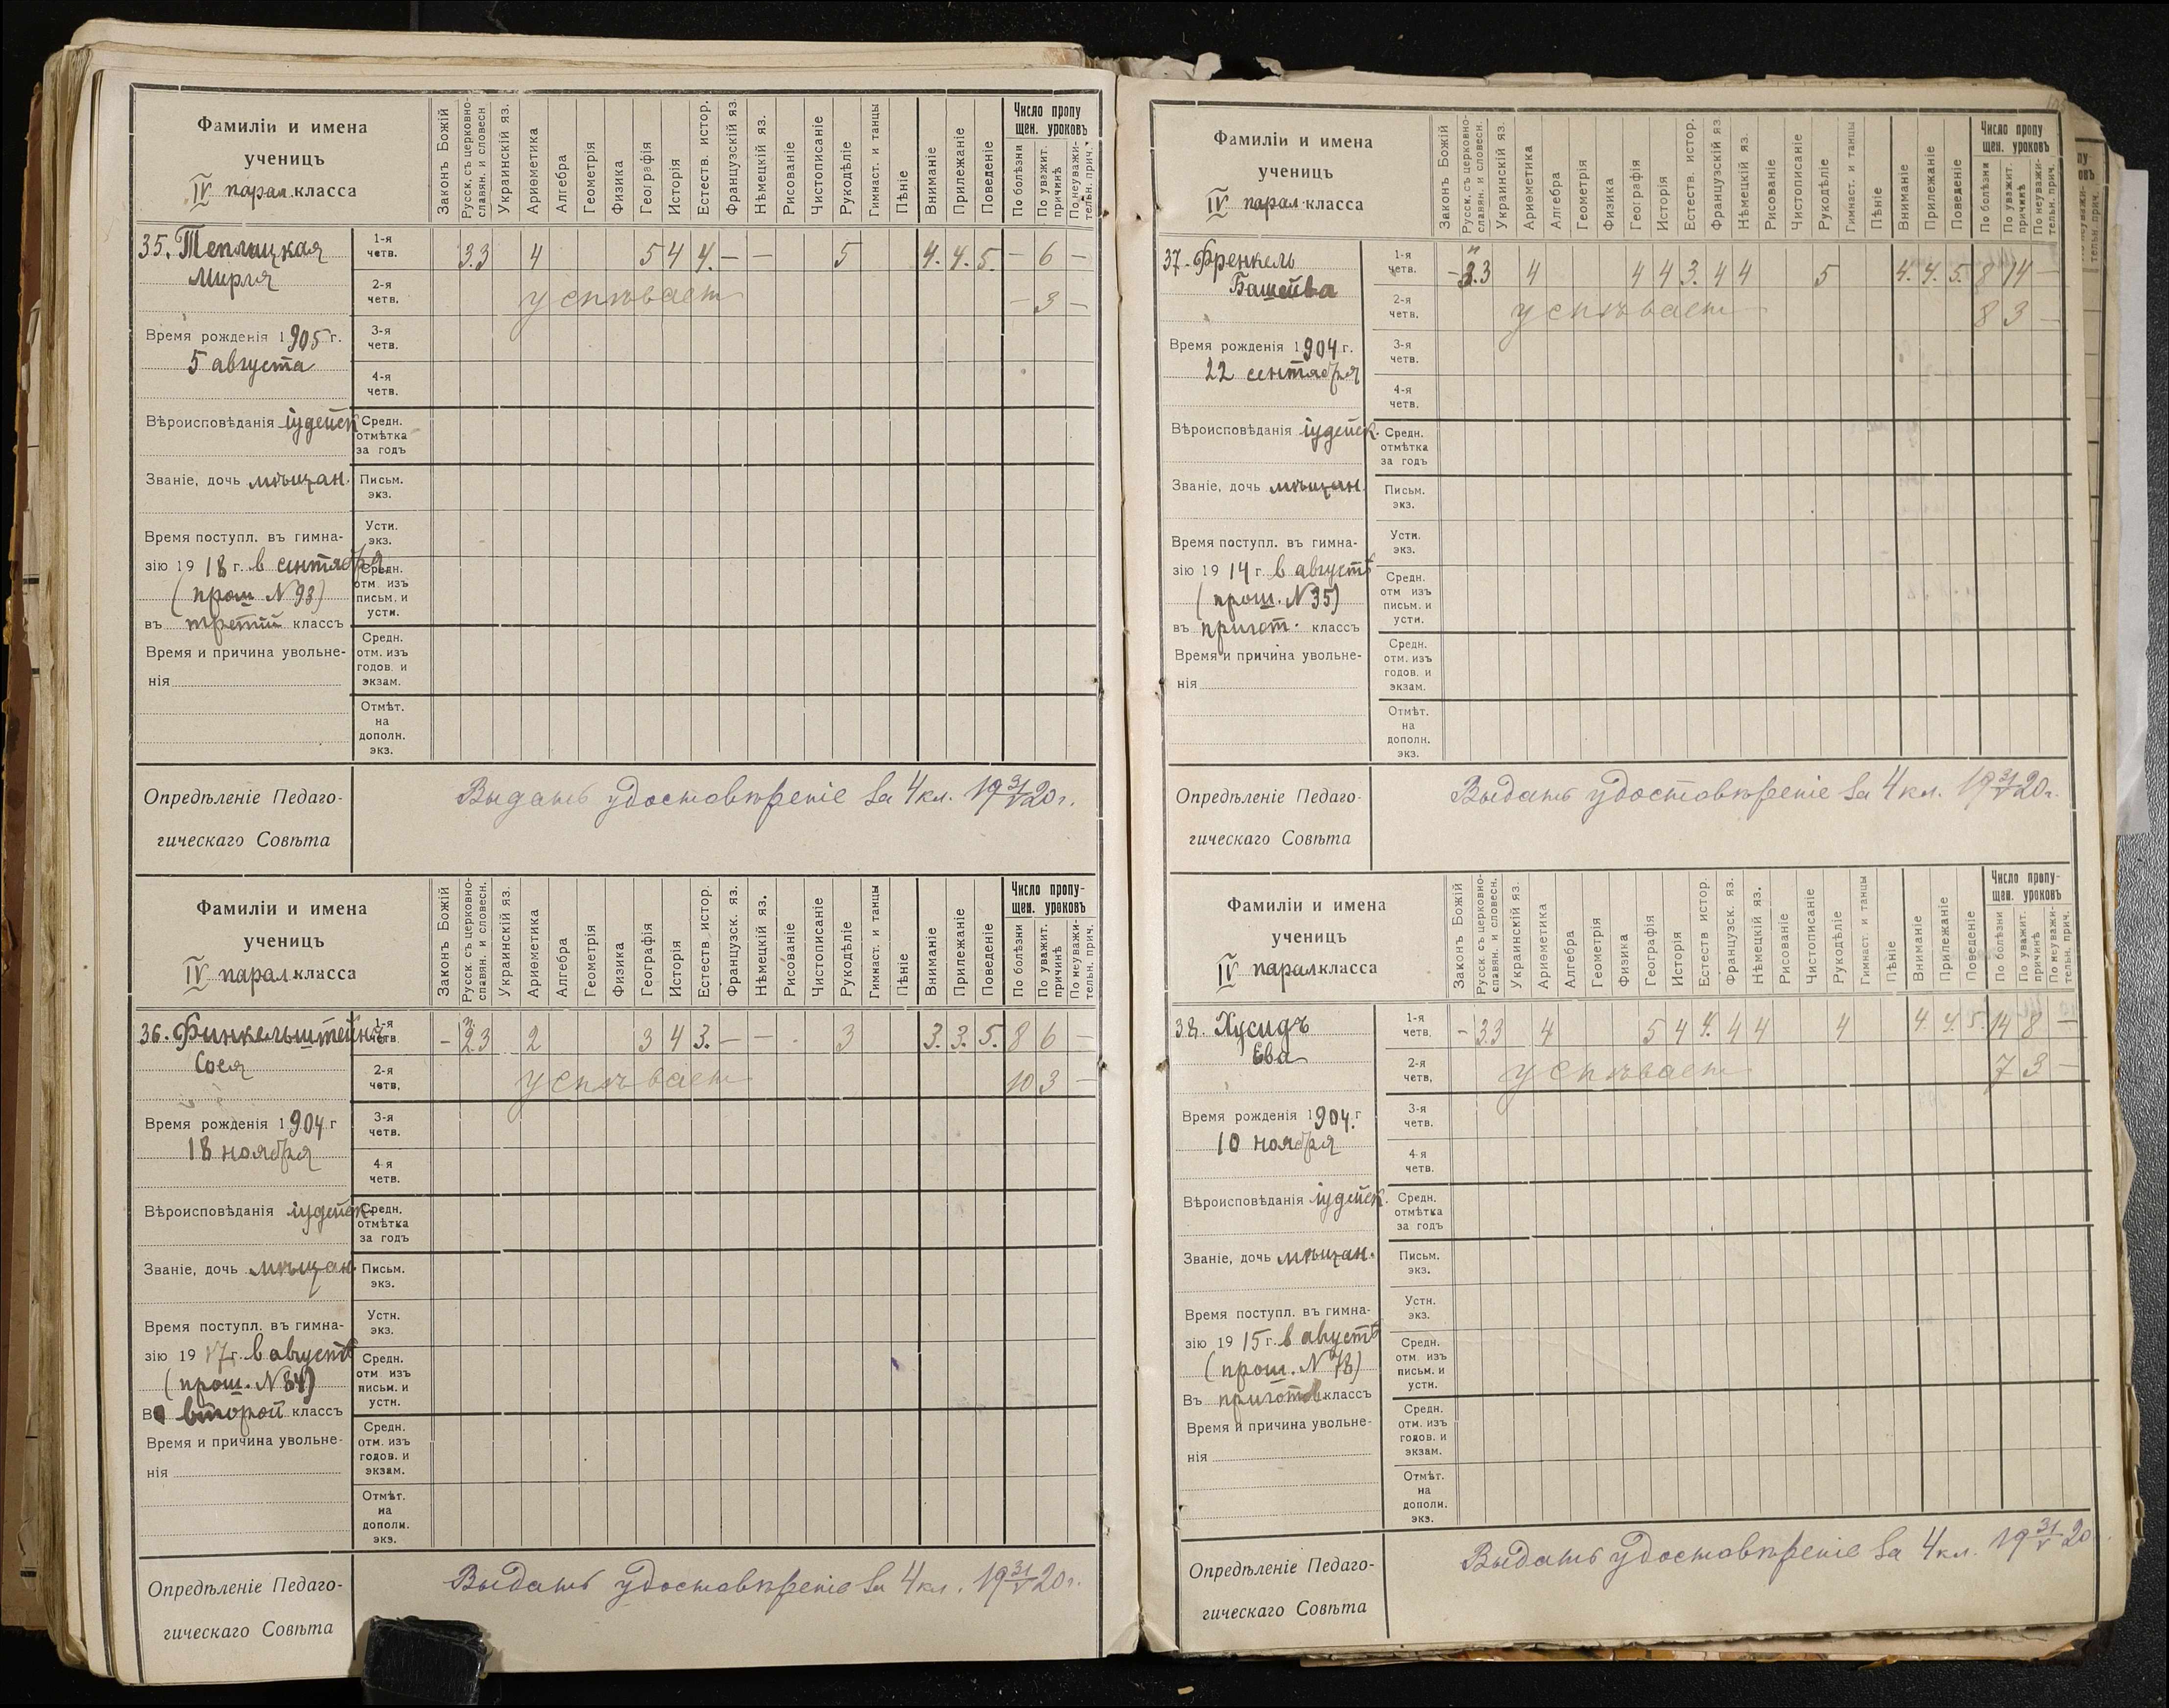 Фамиліи и имена
ученицъ
IV парал. класса
Законъ Божій
Русск. съ церковно-
славян. и словесн
Украинскій яз.
Ариѳметика
Алгебра
Геометрія
Физика
Географія
Исторія
Естеств. истор.
Французскій яз.
Нѣмецкій яз.
Рисованіе
Чистописаніе
Рукодѣліе
Гимнаст. и танцы
Пѣніе
Вниманіе
Прилежаніе
Поведеніе
Число пропу
щен. уроковъ
По болѣзни
По уважит.
причинѣ
По неуважи-
тельн. прич.
35. Теплицкая
Мирля
1-я
четв.
3.3 4 5 4 4. – – 5 4. 4. 5. – 6 –
2-я
четв.
успѣвает – 3 –
Время рожденія 1905 г.
5 августа
3-я
четв.
4-я
четв.
Вѣроисповѣданія іудейск
Средн.
отмѣтка
за годъ
Званіе, дочь мѣщан.
Письм.
экз.
Время поступл. въ гимна-
зію 19 18 г. в сентября
(прош N 93)
въ третій классъ
Устн.
экз.
Средн.
отм. изъ
письм. и
устн.
Время и причина увольне-
нія
Средн.
отм. изъ
годов. и
экзам.
Отмѣт.
на
дополн.
экз.
Опредѣленіе Педаго-
гическаго Совѣта
Выдать удостовѣреніе за 4 кл. 19 31/V 20 г.
Фамиліи и имена
ученицъ
IV парал. класса
Законъ Божій
Русск. съ церковно-
славян. и словесн.
Украинскій яз.
Ариѳметика
Алгебра
Геометрія
Физика
Географія
Исторія
Естеств. истор.
Французск. яз.
Нѣмецкій яз.
Рисованіе
Чистописаніе
Рукодѣліе
Гимнаст. и танцы
Пѣніе
Вниманіе
Прилежаніе
Поведеніе
Число пропу-
щен. уроковъ
По болѣзни
По уважит.
причинѣ
По неуважи-
тельн. прич.
36. Финкельштейнъ
Сося
1-я
четв.
– 2.3 2 3 4 3. – – 3 3. 3. 5. 8 6 –
2-я
четв.
успѣвает 10 3 –
Время рожденія 1904 г
18 ноября
3-я
четв.
4-я
четв.
Вѣроисповѣданія іудейск.
Средн.
отмѣтка
за годъ
Званіе, дочь мѣщан.
Письм.
экз.
Время поступл. въ гимна-
зію 19 17 г. в августѣ
(прош. N 84)
второй классъ
Устн.
экз.
Средн.
отм. изъ
письм. и
устн.
Время и причина увольне-
нія
Средн.
отм. изъ
годов. и
экзам.
Отмѣт.
на
дополн.
экз.
Опредѣленіе Педаго-
гическаго Совѣта
Выдать удостовѣреніе за 4 кл. 19 31/V 20 г.
Фамиліи и имена
ученицъ
IV парал. класса
Законъ Божій
Русск. съ церковно-
славян. и словесн.
Украинскій яз.
Ариѳметика
Алгебра
Геометрія
Физика
Географія
Исторія
Естеств. истор.
Французскій яз
Нѣмецкій яз.
Рисованіе
Чистописаніе
Рукодѣліе
Гимнаст. и танцы
Пѣніе
Вниманіе
Прилежаніе
Поведеніе
Число пропу
щен. уроковъ
По болѣзни
По уважит.
причинѣ
По неуважи-
тельн. прич.
37. Френкель
Башейва
1-я
четв.
– 3.3 4 4 4 3. 4 4 5 4. 4. 5. 8 14 –
2-я
четв.
успѣвает 8 3 –
Время рожденія 1904 г.
22 сентября
3-я
четв.
4-я
четв.
Вѣроисповѣданія іудейск.
Средн.
отмѣтка
за годъ
Званіе, дочь мѣщан.
Письм.
экз.
Время поступл. въ гимна-
зію 19 14 г. в августѣ
(прош. N 35)
въ пригот. классъ
Устн.
экз.
Средн.
отм изъ
письм. и
устн.
Время и причина увольне-
нія
Средн.
отм. изъ
годов. и
экзам.
Отмѣт.
на
дополн.
экз.
Опредѣленіе Педаго-
гическаго Совѣта
Выдать удостовѣреніе за 4 кл. 19 31/V 20 г.
Фамиліи и имена
ученицъ
IV парал. класса
Законъ Божій
Русск. съ церковно-
славян. и словесн.
Украинскій яз.
Ариѳметика
Алгебра
Геометрія
Физика
Географія
Исторія
Естеств истор.
Французск. яз.
Нѣмецкій яз.
Рисованіе
Чистописаніе
Рукодѣліе
Гимнаст. и танцы
Пѣніе
Вниманіе
Прилежаніе
Поведеніе
Число пропу-
щен. уроковъ
По болѣзни
По уважит.
причинѣ
По неуважи-
тельн. прич.
38. Хусидъ
Ева
1-я
четв.
– 3.3 4 5 4 4. 4 4 4 4. 4. 5. 14 8 –
2-я
четв.
успѣвает 7 3 –
Время рожденія 1904. г
10 ноября
3-я
четв.
4-я
четв.
Вѣроисповѣданія іудейск.
Средн.
отмѣтка
за годъ
Званіе, дочь мѣщан.
Письм.
экз.
Время поступл. въ гимна-
зію 19 15 г. в августѣ
(прош. N 78)
Въ приготов. классъ
Устн.
экз.
Средн.
отм. изъ
письм. и
устн.
Время и причина увольне-
нія
Средн.
отм. изъ
годов. и
экзам.
Отмѣт.
на
дополн.
экз.
Опредѣленіе Педаго-
гическаго Совѣта
Выдать удостовѣреніе за 4 кл. 19 31/V 20